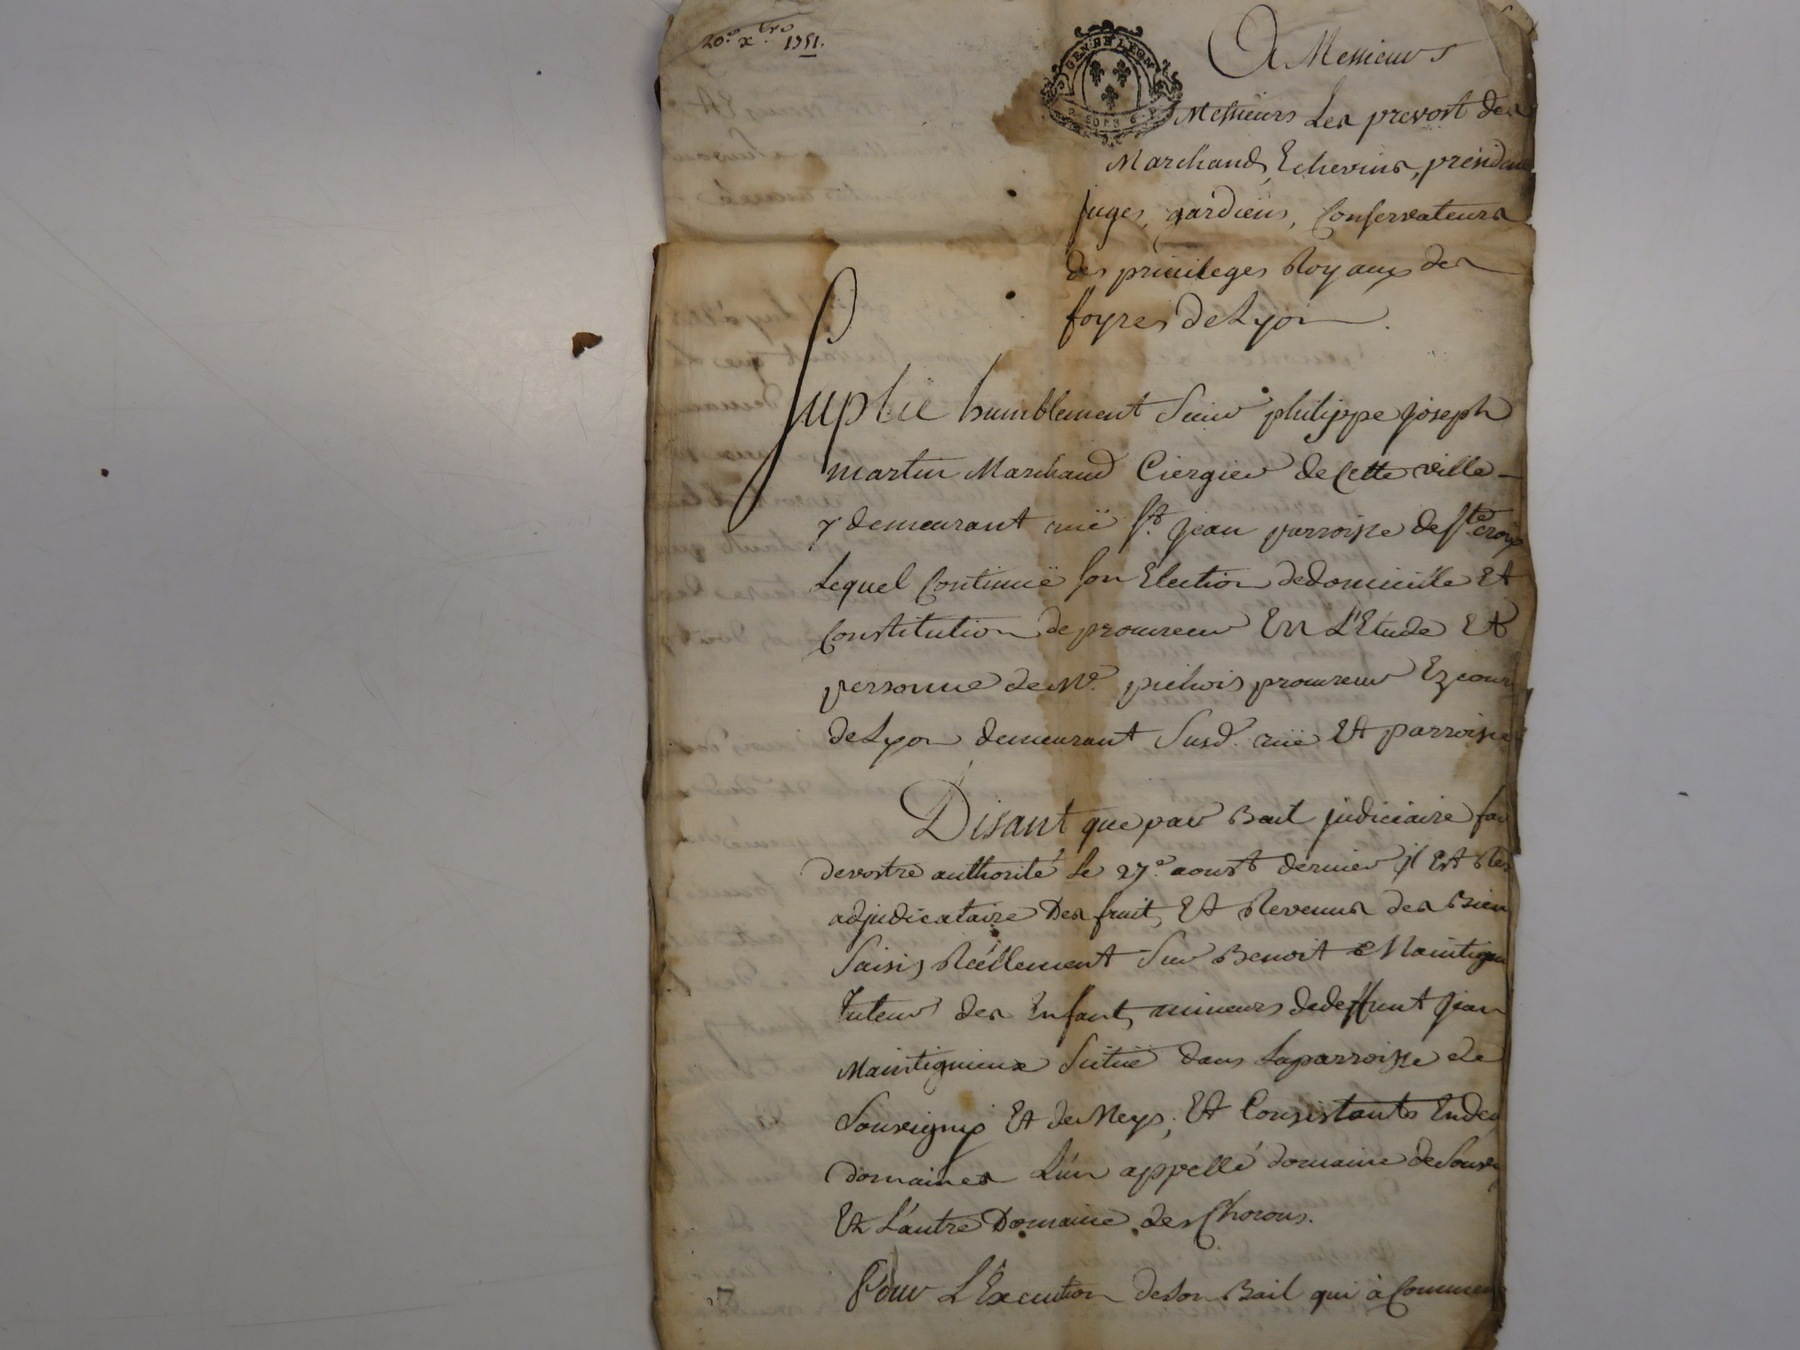 20e xbre 1751.
GEN DE LYON
2 SOLS 6 D
A Messieurs
Messieurs Les prevost des
Marchands, Echevins, presidens
juges, gardiens, Conservateurs
des privileges Royaux des
foyres de Lyon.
Suplie humblement Sieur philippe joseph
martin Marchand Ciergier de Cette ville
y demeurant ruë St. jean parroisse de Ste croix
Lequel Continuë son Election de domicille Et
Constitution de procureur En L'Etude Et
personne de Me. pichois procureur Ez cours
de Lyon demeurant Susd. ruë Et parroisse
Disant que par Bail judiciaire fait
de vostre authorité Le 27e. aoust dernier il Est
adjudicataire Des fruits Et Revenus des Biens
Saisis Réellement Sur Benoit Maintigneux
Tuteur des Enfants mineurs de deffunt Jean
Maintignieux Situé dans La parroisse de
Souvigny Et de Meys, Et Consistants En deux
domaines L'un appellé domaine de Souvigny
Et L'autre Domaine des Chorons.
Pour L'Execution de son Bail qui à Commencé